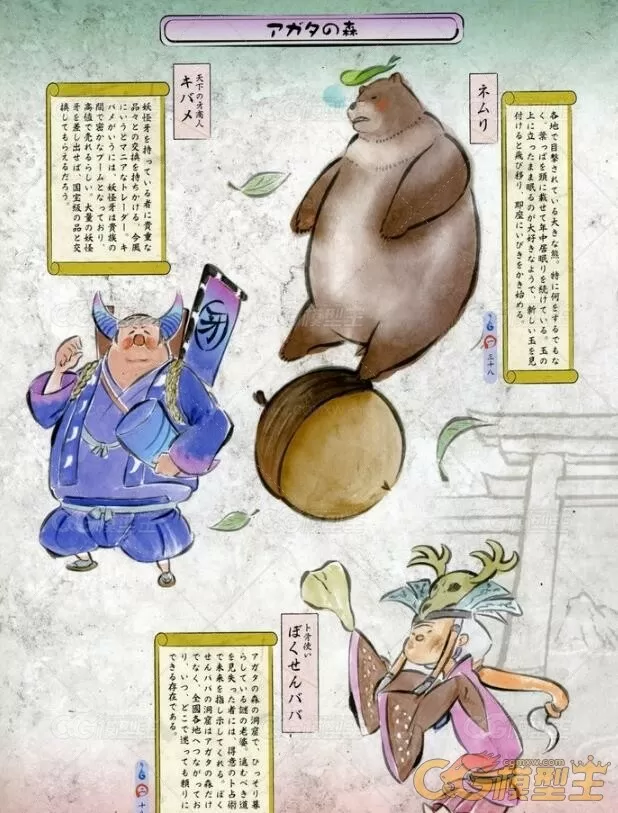 アガタの森
ネムリ
各地で目撃されている大きな熊。特に何をするでもな
く、葉っぱを頭に載せて年中居眠りを続けている。玉の
上に立ったまま眠るのが大好きなようで、新しい玉を見
付けると飛び移り、即座にいびきをかき始める。
三十八
天下の牙商人
キバメ
妖怪牙を持っている者に貴重な
品々との交換を持ちかける、今風
にいうとマニアなトレーダー。キ
バメがいうには、妖怪牙は貴族の
間で密かなブームとなっており、
高値で売れるらしい。大量の妖怪
牙を差し出せば、国宝級の品と交
換してもらえるだろう。
牙
ト骨使い
ぼくせんババ
アガタの森の洞窟で、ひっそり暮
らしている謎の老婆。進むべき道
を見失った者には、得意のト占術
で未来を指し示してくれる。ぼく
せんババの洞窟はアガタの森だけ
でなく、全国各地へつながってお
り、いつ、どこで迷っても頼りに
できる存在である。
CG模型王
cgmxw.com